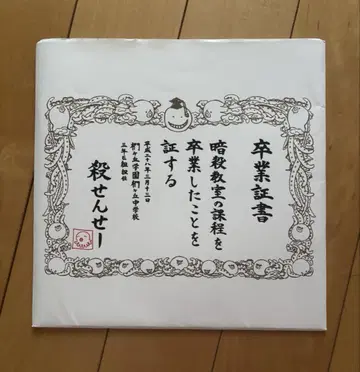 卒業証書
暗殺教室の課程を
卒業したことを
証する
平成二十八年三月十三日
椚ヶ丘学園椚ヶ丘中学校
三年E組担任
殺せんせー